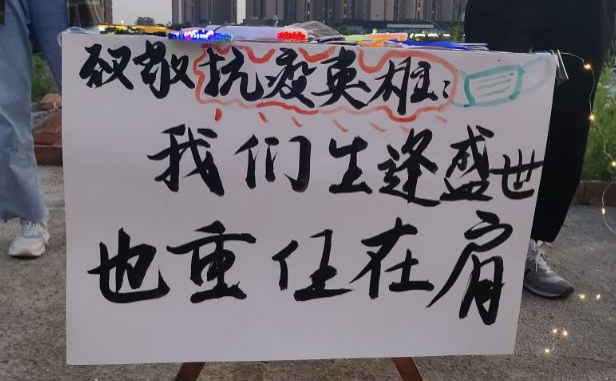 致敬抗疫英雄：
我们生逢盛世
也重任在肩